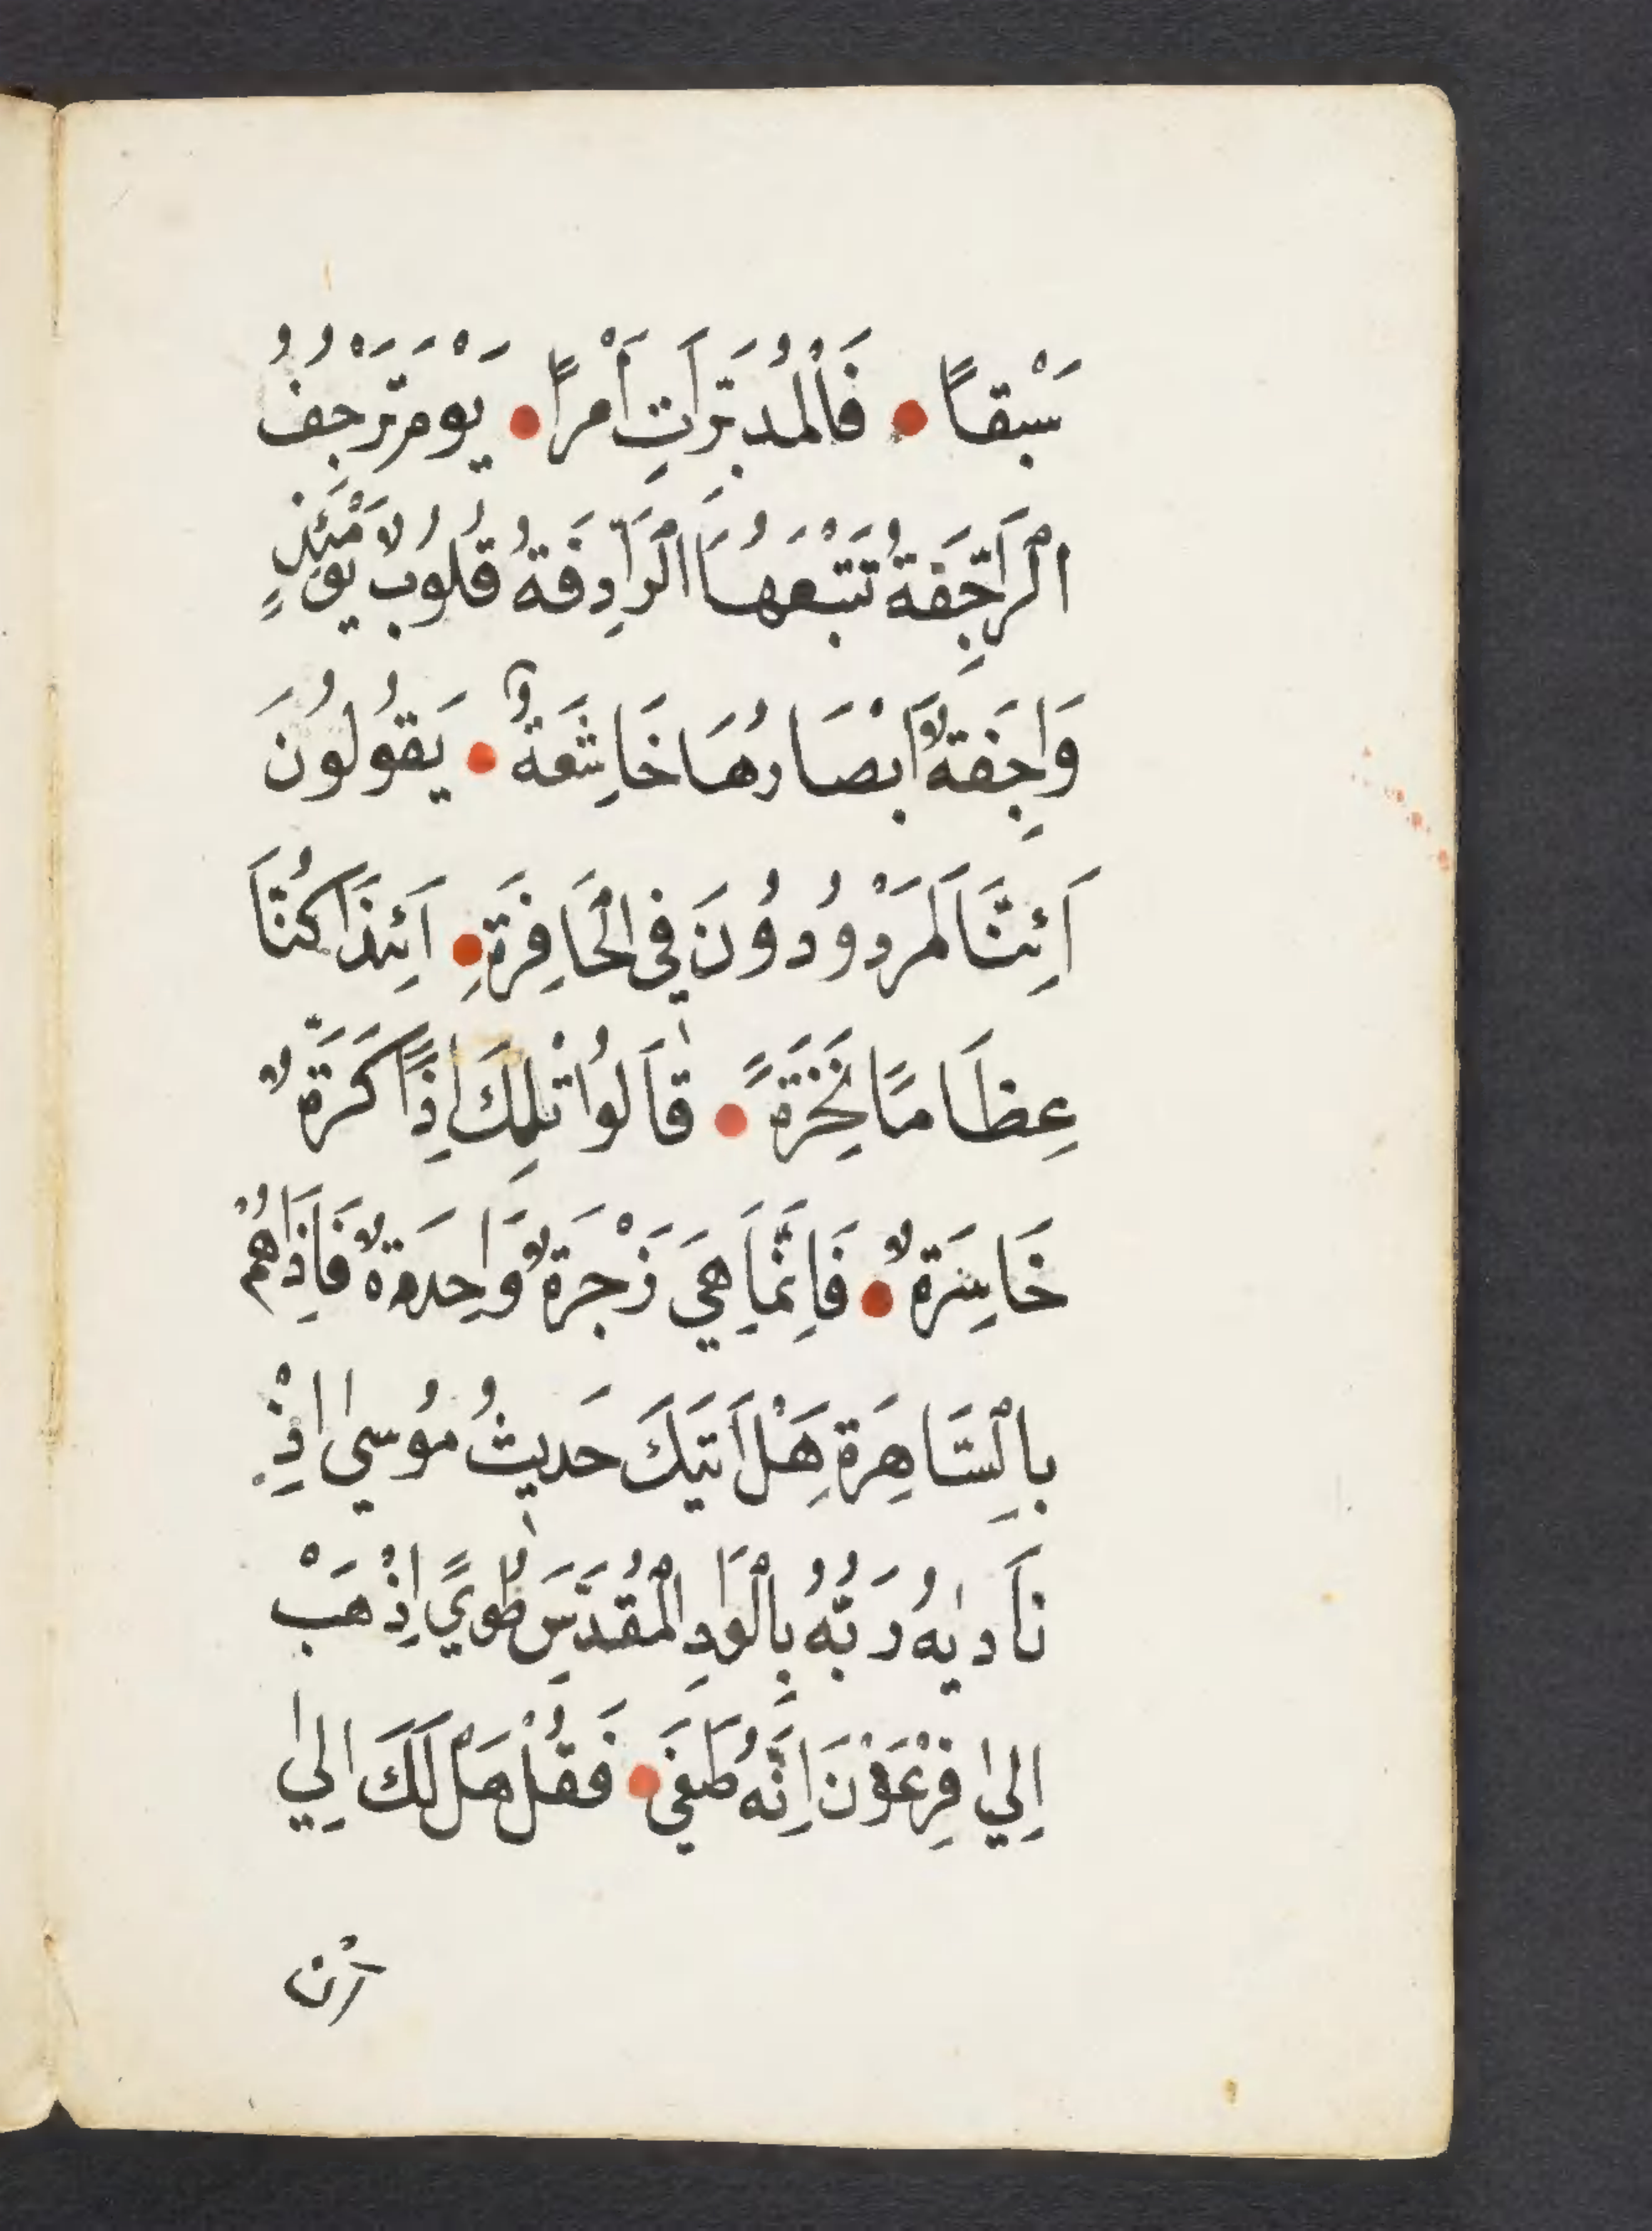 سَبْقاً • فَالْمُدَبِّرَاتِ أَمْراً • يَوْمَ تَرْجُفُ
الرَّاجِفَةُ تَتْبَعُهَا الرَّادِفَةُ قُلُوبٌ يَوْمَئِذٍ
وَاجِفَةٌ اَبْصَارُهَا خَاشِعَةٌ • يَقُولُونَ
اَئِنَّا لَمَرْدُودُونَ فِي الْحَافِرَةِ • اَئِذَا كُنَّا
عِظَامًا نَخِرَةً • قَالُوا تِلْكَ اِذًا كَرَّةٌ
خَاسِرَةٌ • فَاِنَّمَا هِيَ زَجْرَةٌ وَاحِدَةٌ فَاِذَا هُمْ
بِالسَّاهِرَةِ هَلْ اَتٰيكَ حَدِيثُ مُوسٰي اِذْ
نَادٰيهُ رَبُّهُ بِالْوَادِ الْمُقَدَّسِ طُوًي اِذْهَبْ
اِلٰي فِرْعَوْنَ اِنَّهُ طَغَي • فَقُلْ هَلْ لَكَ اِلٰي
اَنْ